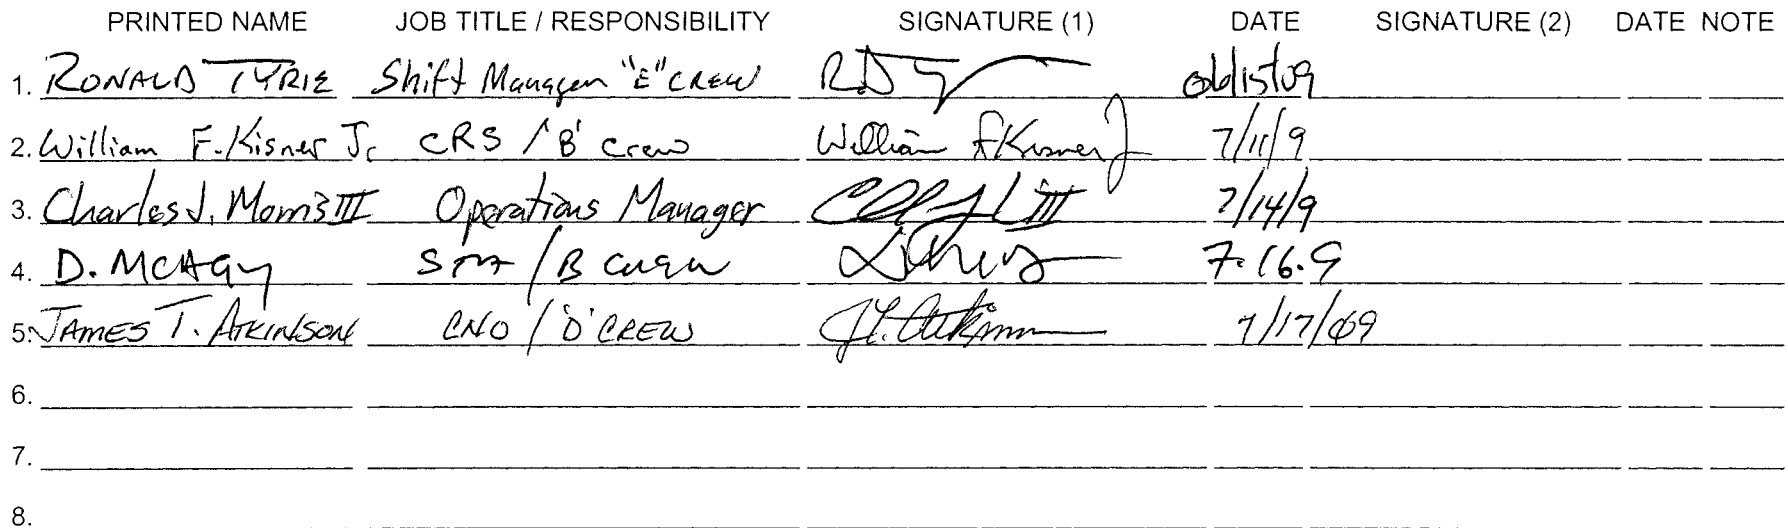 PRINTED NAME JOB TITLE / RESPONSIBILITY SIGNATURE (1) DATE SIGNATURE (2) DATE NOTE
1. RONALD TYRIE Shift Manager "E" CREW 06/15/09
2. William F. Kisner Jr CRS / 'B' Crew William F Kisner J 7/11/9
3. Charles J. Morris III Operations Manager III 7/14/9
4. D. MCHAGY / B CREW 7.16.9
5. JAMES T. ATKINSON CNO / 'D' CREW J.T. Atkinson 7/17/09
6.
7.
8.